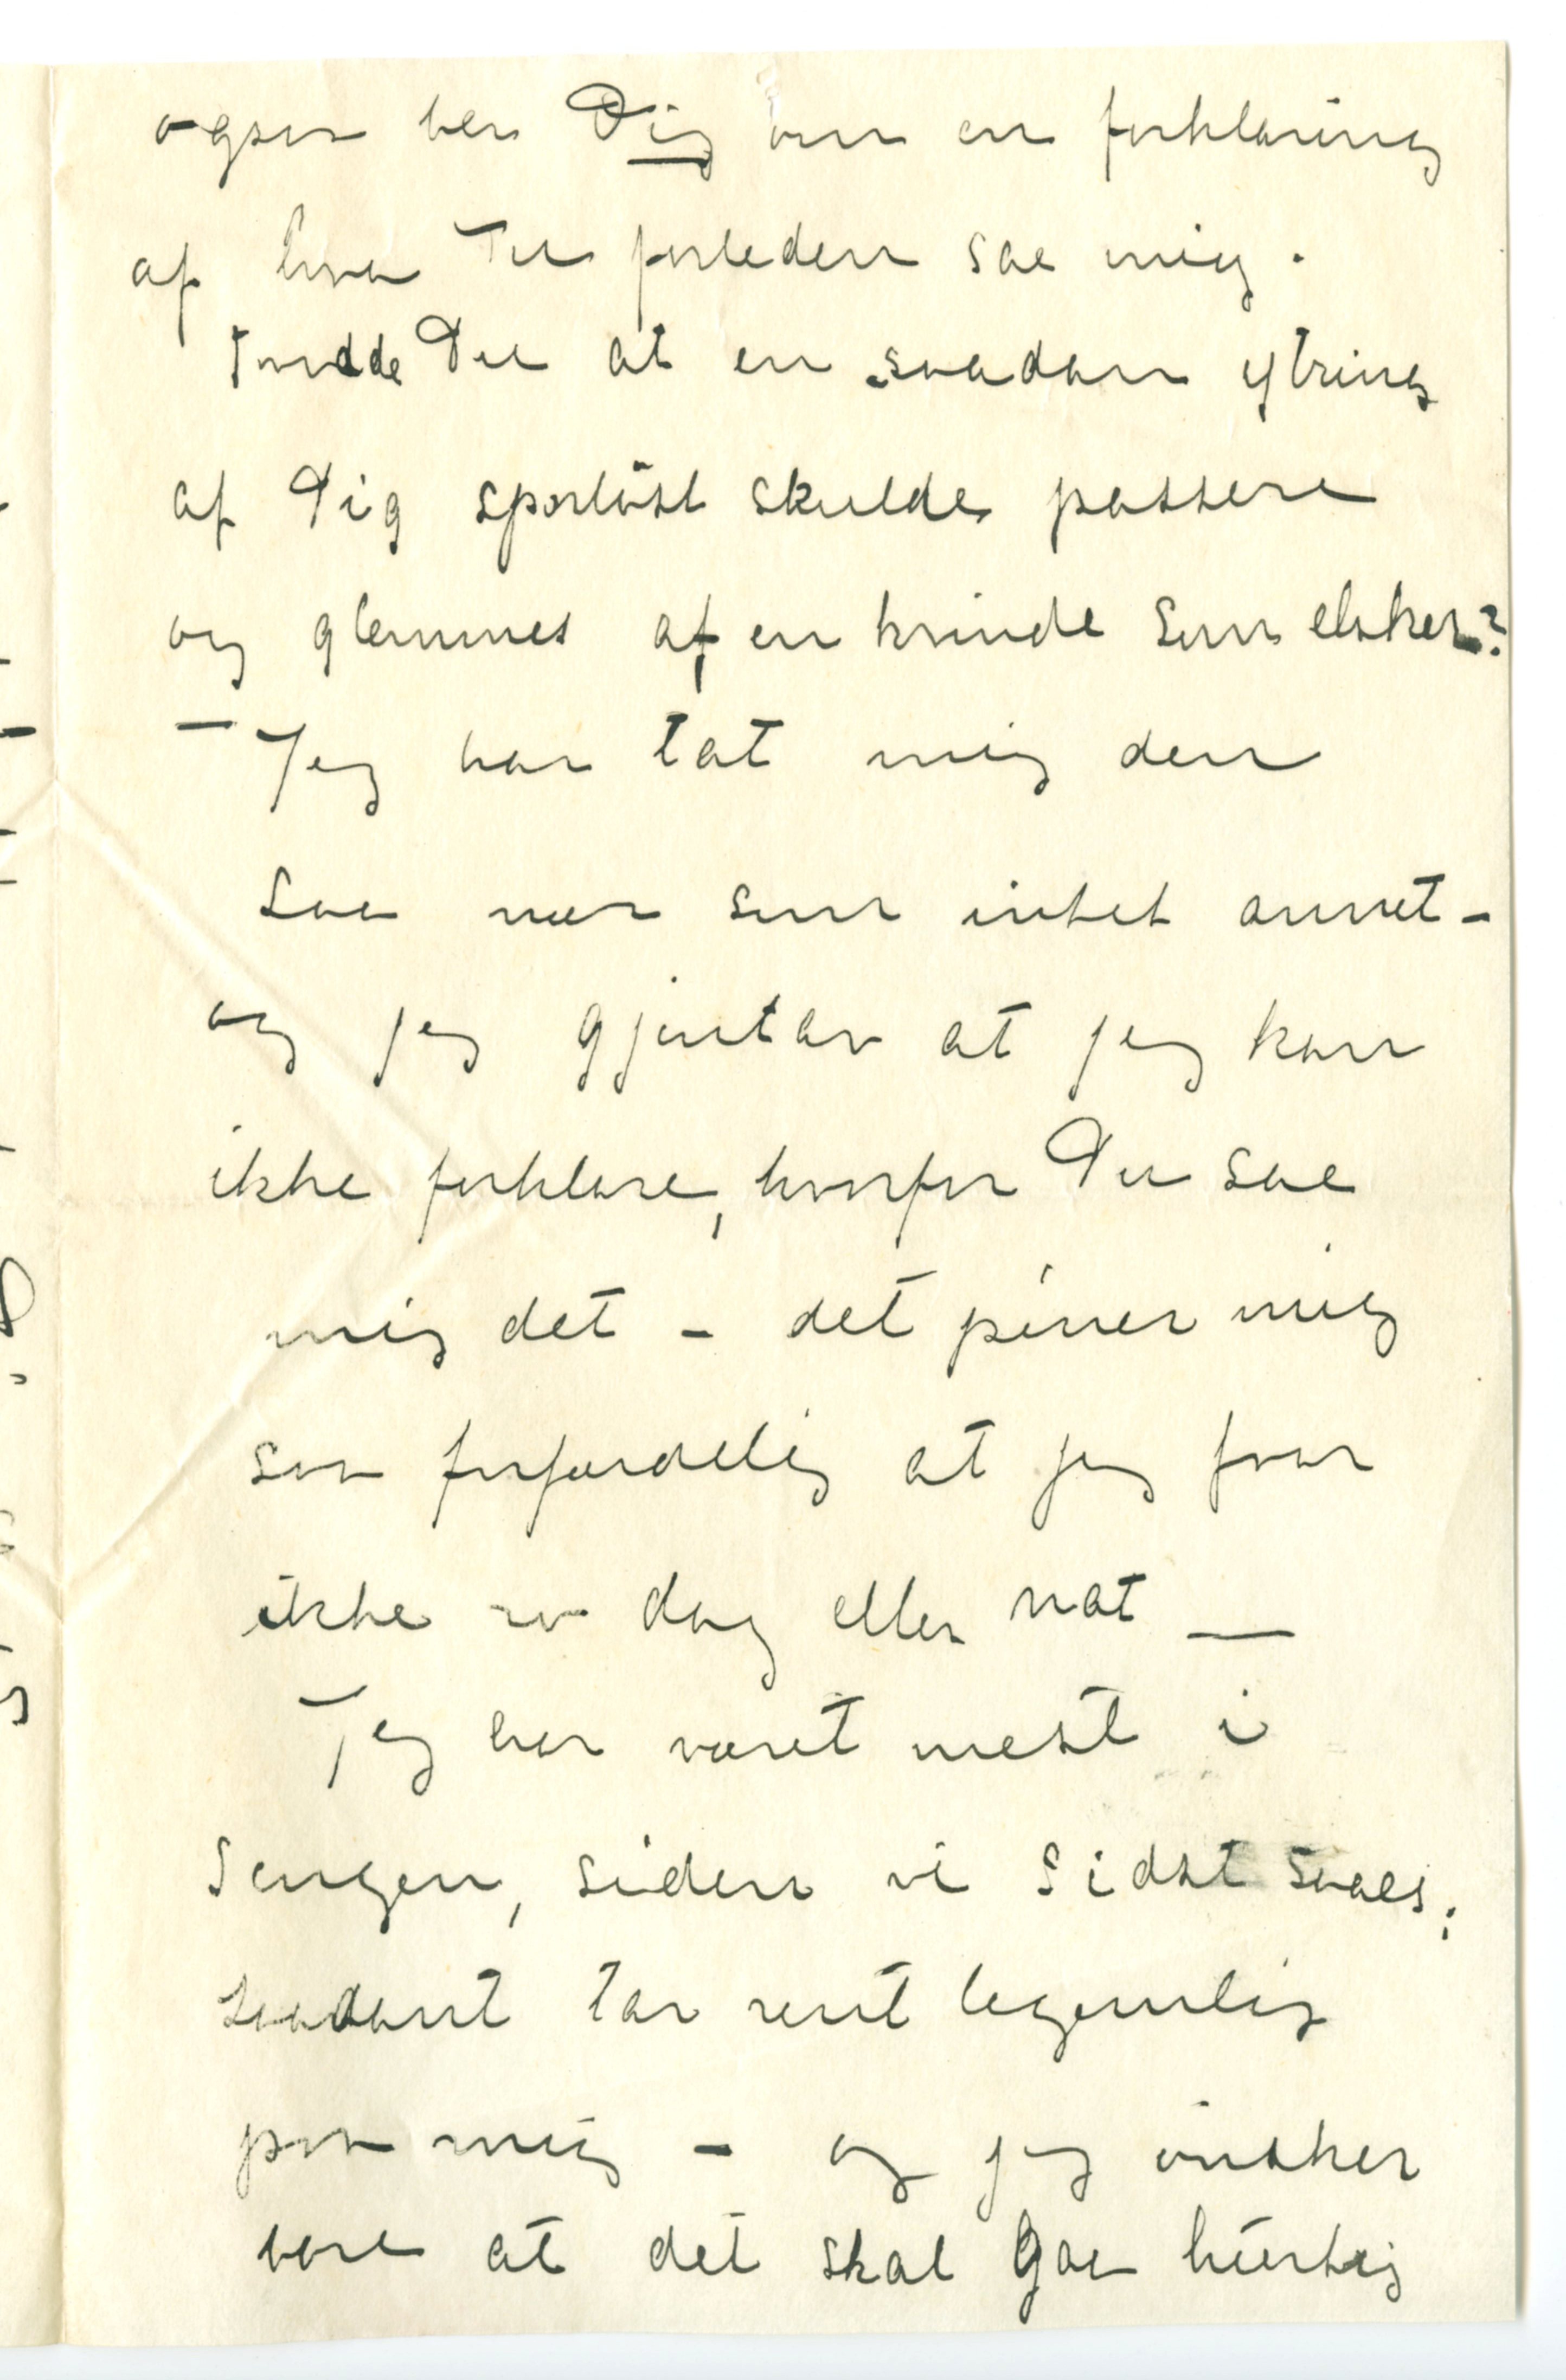 ogsaa ber Dig om en forklaring
af hva Du forleden sae mig.
Trodde Du at en saadan ytring
af Dig sporløst skulde passere
og glemmes af en kvinde som elsker?
— Jeg har tat mig den
saa nær som intet annet –
og jeg gjentar at jeg kan
ikke forklare, hvorfor Du sae
mig det – det piner mig
saa forfærdelig at jeg faar
ikke ro dag eller nat —
Jeg har været mest i
Sengen, siden vi sidst saaes;
saadant tar rent legemlig
paa mig – og jeg ønsker
bare at det skal gaa hurtig